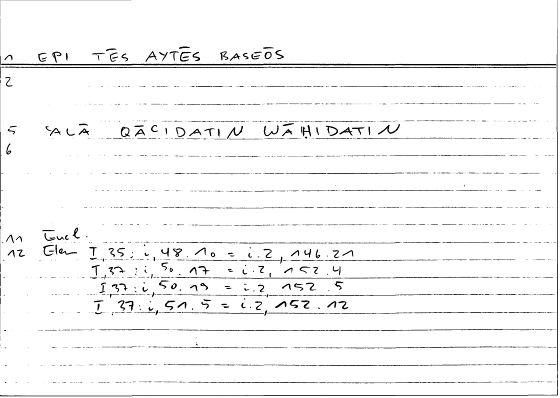 1 EPI TĒS AYTĒS BASEŌS
2
5 ʿALĀ QĀʿIDATIN WĀḤIDATIN
6
11 Eucl.
12 Elem I,35: i, 48.10 = i.2, 146.21
I,37: i, 50.17 = i.2, 152.4
I,37: i, 50.19 = i.2, 152.5
I,37: i, 51.5 = i.2, 152.12